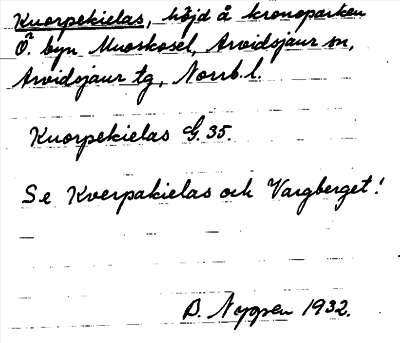 Kuorpekielas, höjd å kronoparken
Ö. byn Muoskosel, Arvidsjaur sn,
Arvidsjaur tg, Norrb. l.
Kuorpekielas G. 35.
Se Kverpakielas och Vargberget!
B. Nygren 1932.